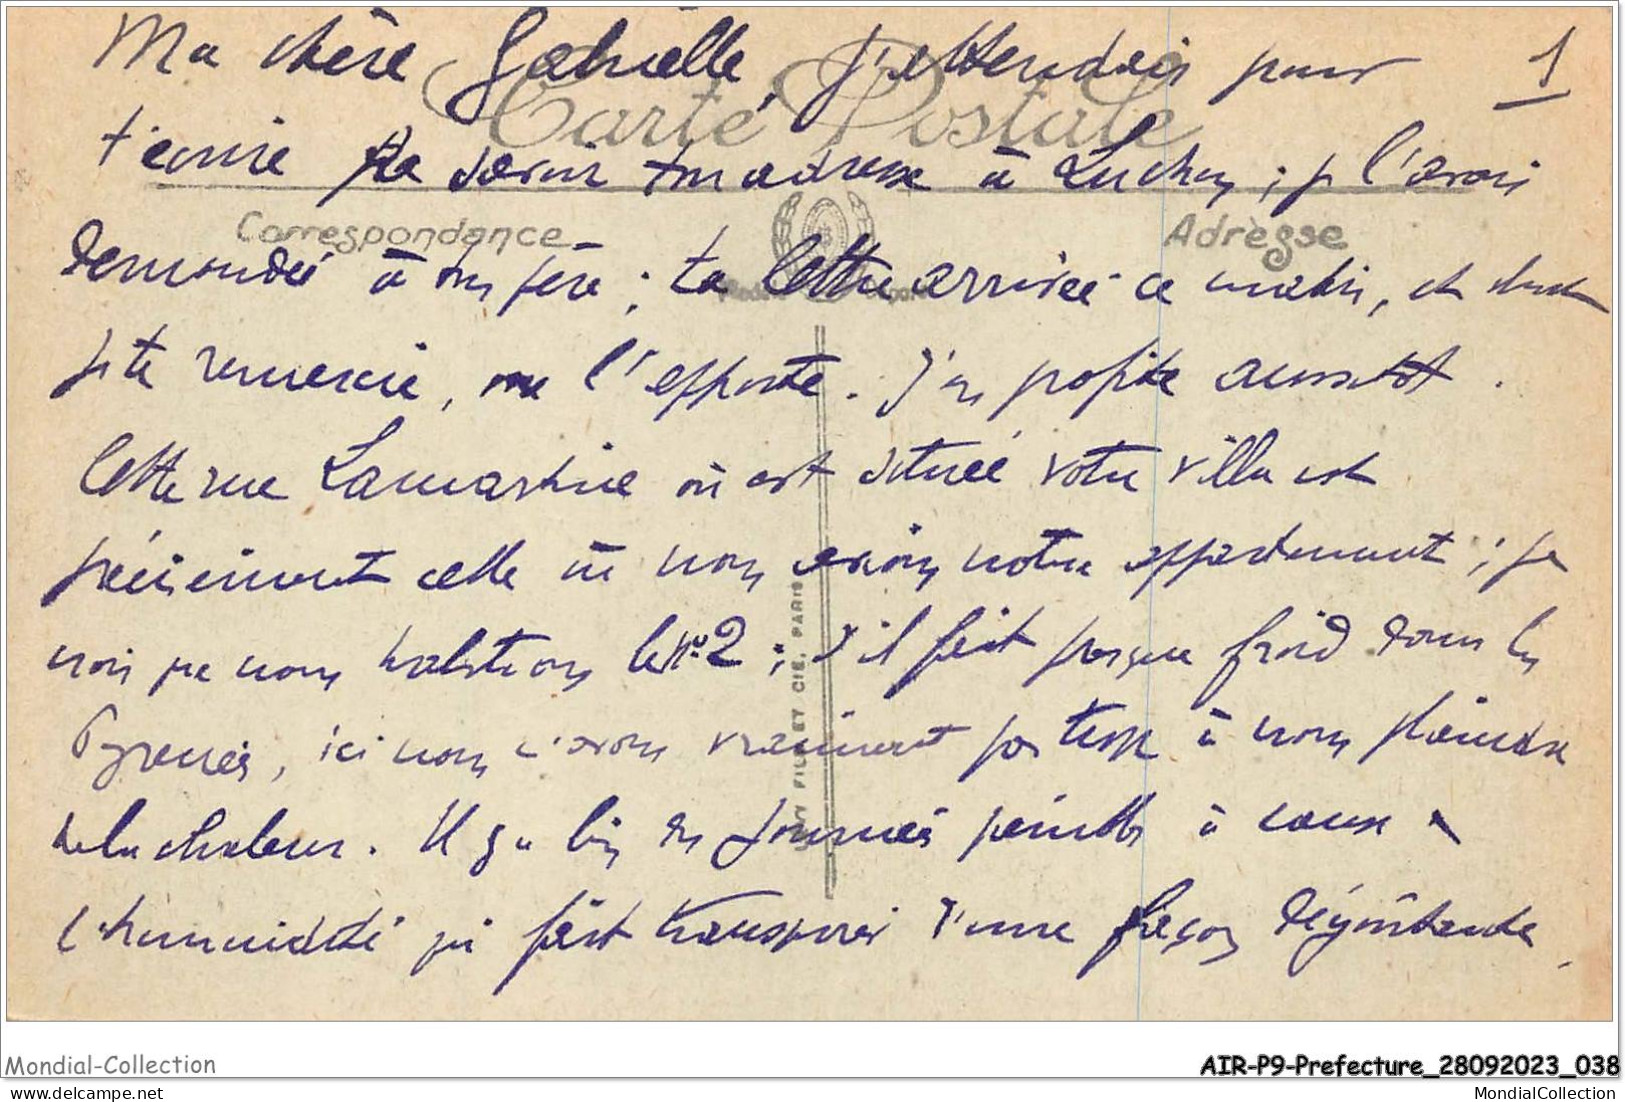 Ma chère Gabrielle, j'attendais pour 1
Carte Postale
t'écrire de savoir ton adresse à Luchon ; je l'avais
Correspondance Adresse
demandée à ton père ; ta lettre arrivée ce matin, et dont
je te remercie, me l'apporte. J'en profite aussitôt.
Cette rue Lamartine où est située votre villa est
précisément celle où nous avions notre appartement ; je
crois que nous habitions le N° 2 ; s'il fait presque froid dans les
Pyrénées, ici nous n'avons vraiment pas trop à nous plaindre
de la chaleur. Il y a bien des journées pénibles à cause
l'humidité qui fait transpirer d'une façon dégoûtante.
FILS ET CIE, PARIS
Mondial-Collection AIR-P9-Prefecture_28092023_038
delcampe.net MondialCollection